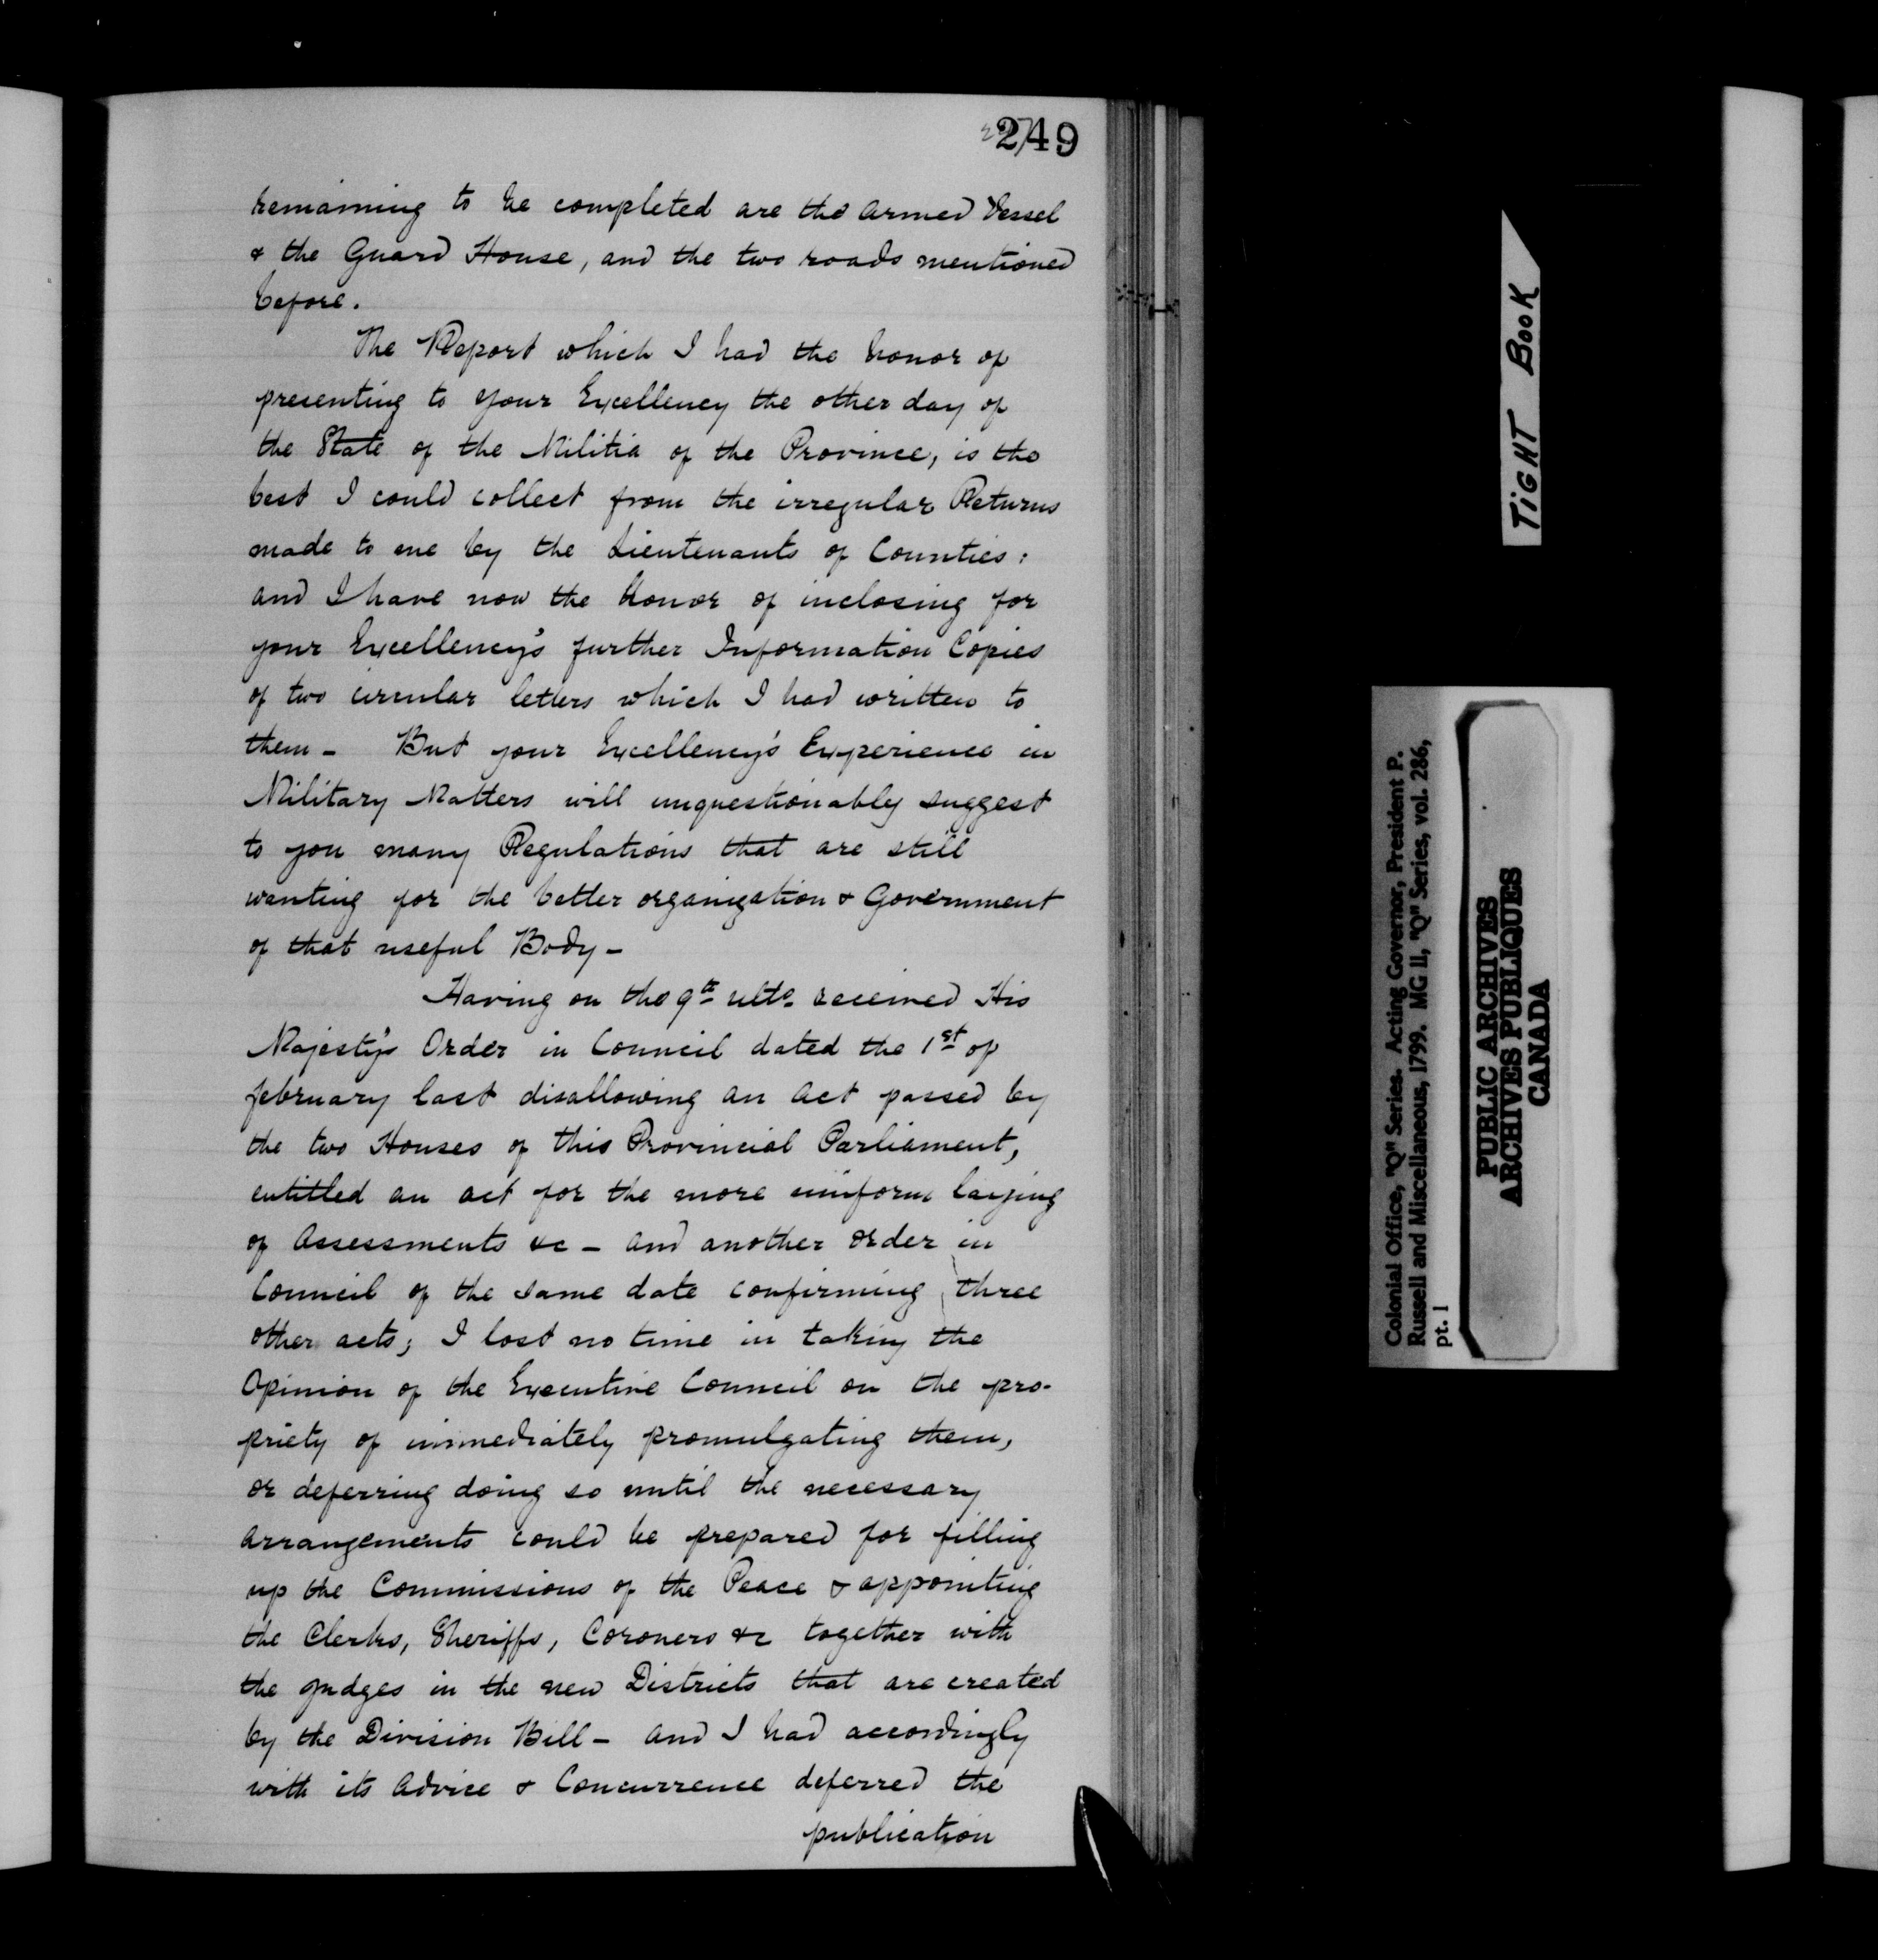 249
remaining to be completed are the armed Vessel
& the Guard House, and the two roads mentioned
before.
The Report which I had the honor of
presenting to your Excellency the other day of
the State of the Militia of the Province, is the
best I could collect from the irregular Returns
made to me by the Lieutenants of Counties:
and I have now the honor of inclosing for
your Excellency's further Information Copies
of two circular letters which I had written to
them - But your Excellency's Experience in
Military Matters will unquestionably suggest
to you many Regulations that are still
wanting for the better organization & Government
of that useful Body -
Having on the 9th ulto. received His
Majesty's Order in Council dated the 1st of
february last disallowing an act passed by
the two Houses of this Provincial Parliament,
entitled an act for the more uniform laying
of Assessments &c - and another order in
Council of the same date confirming three
other acts; I lost no time in taking the
Opinion of the Executive Council on the pro-
priety of immediately promulgating them,
or deferring doing so until the necessary
arrangements could be prepared for filling
up the Commissions of the Peace & appointing
the Clerks, Sheriffs, Coroners &c together with
the judges in the new Districts that are created
by the Division Bill - and I had accordingly
with its advice & Concurrence deferred the
publication
TIGHT BOOK
Colonial Office, "Q" Series. Acting Governor, President P.
Russell and Miscellaneous, 1799. MG 11, "Q" Series, vol. 286,
pt. 1
PUBLIC ARCHIVES
ARCHIVES PUBLIQUES
CANADA